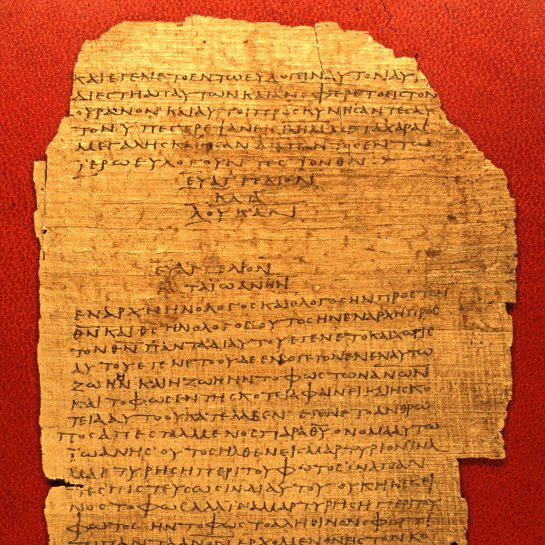 ΚΑΙΕΓΕΝΕΤΟΕΝΤΩΕΥΛΟΓΕΙΝΑΥΤΟΝΑΥ
ΔΙΕϹΤΗΑΠΑΥΤΩΝΚΑΙΑΝΕΦΕΡΕΤΟΕΙϹΤΟΝ
ΟΥΡΑΝΟΝΚΑΙΑΥΤΟΙΠΡΟϹΚΥΝΗϹΑΝΤΕϹΑΥ
ΤΟΝΥΠΕϹΤΡΕΨΑΝΕΙϹ ΜΕΤΑΧΑΡΑϹ
ΜΕΓΑΛΗϹΚΑΙΗϹΑΝΔΙΑΠΑΝΤΟϹΕΝΤΩ
ΪΕΡΩΕΥΛΟΓΟΥΝΤΕϹΤΟΝΘΝ
ΕΥΑΓΓΕΛΙΟΝ
ΚΑΤΑ
ΛΟΥΚΑΝ
ΕΥΑΓΓΕΛΙΟΝ
ΚΑΤΑΙΩΑΝΗΝ
ΕΝΑΡΧΗΗΝΟΛΟΓΟϹΚΑΙΟΛΟΓΟϹΗΝΠΡΟϹΤΟΝ
ΘΝΚΑΙΘϹΗΝΟΛΟΓΟϹΟΥΤΟϹΗΝΕΝΑΡΧΗΠΡΟϹ
ΤΟΝΘΝΠΑΝΤΑΔΙΑΥΤΟΥΕΓΕΝΕΤΟΚΑΙΧΩΡΙϹ
ΑΥΤΟΥΕΓΕΝΕΤΟΟΥΔΕΕΝΟΓΕΓΟΝΕΝΕΝΑΥΤΩ
ΖΩΗΗΝΚΑΙΗΖΩΗΗΝΤΟΦΩϹΤΩΝΑΝΩΝ
ΚΑΙΤΟΦΩϹΕΝΤΗϹΚΟΤΕΙΑΦΑΙΝΕΙΚΑΙΗϹΚΟ
ΤΕΙΑΑΥΤΟΟΥΚΑΤΕΛΑΒΕΝΕΓΕΝΕΤΟΑΝΘΡΩ
ΠΟϹΑΠΕϹΤΑΛΜΕΝΟϹΠΑΡΑΘΥΟΝΟΜΑΑΥΤΩ
ΪΩΑΝΗϹΟΥΤΟϹΗΛΘΕΝΕΙϹΜΑΡΤΥΡΙΟΝΪΝΑ
ΜΑΡΤΥΡΗϹΗΠΕΡΙΤΟΥΦΩΤΟϹΪΝΑΠΑΝ
ΤΕϹΠΙϹΤΕΥϹΩϹΙΝΔΙΑΥΤΟΥΟΥΚΗΝΕΚΕΙ
ΝΟϹΤΟΦΩϹΑΛΛΙΝΑΜΑΡΤΥΡΗϹΗΠΕΡΙΤΟΥ
ΦΩΤΟϹΗΝΤΟΦΩϹΤΟΑΛΗΘΙΝΟΝΟΦΩΤΙ
ΖΕΙΠΑΝΤΑΑΝΟΝΕΡΧΟΜΕΝΟΝΕΙϹΤΟΝΚΟ